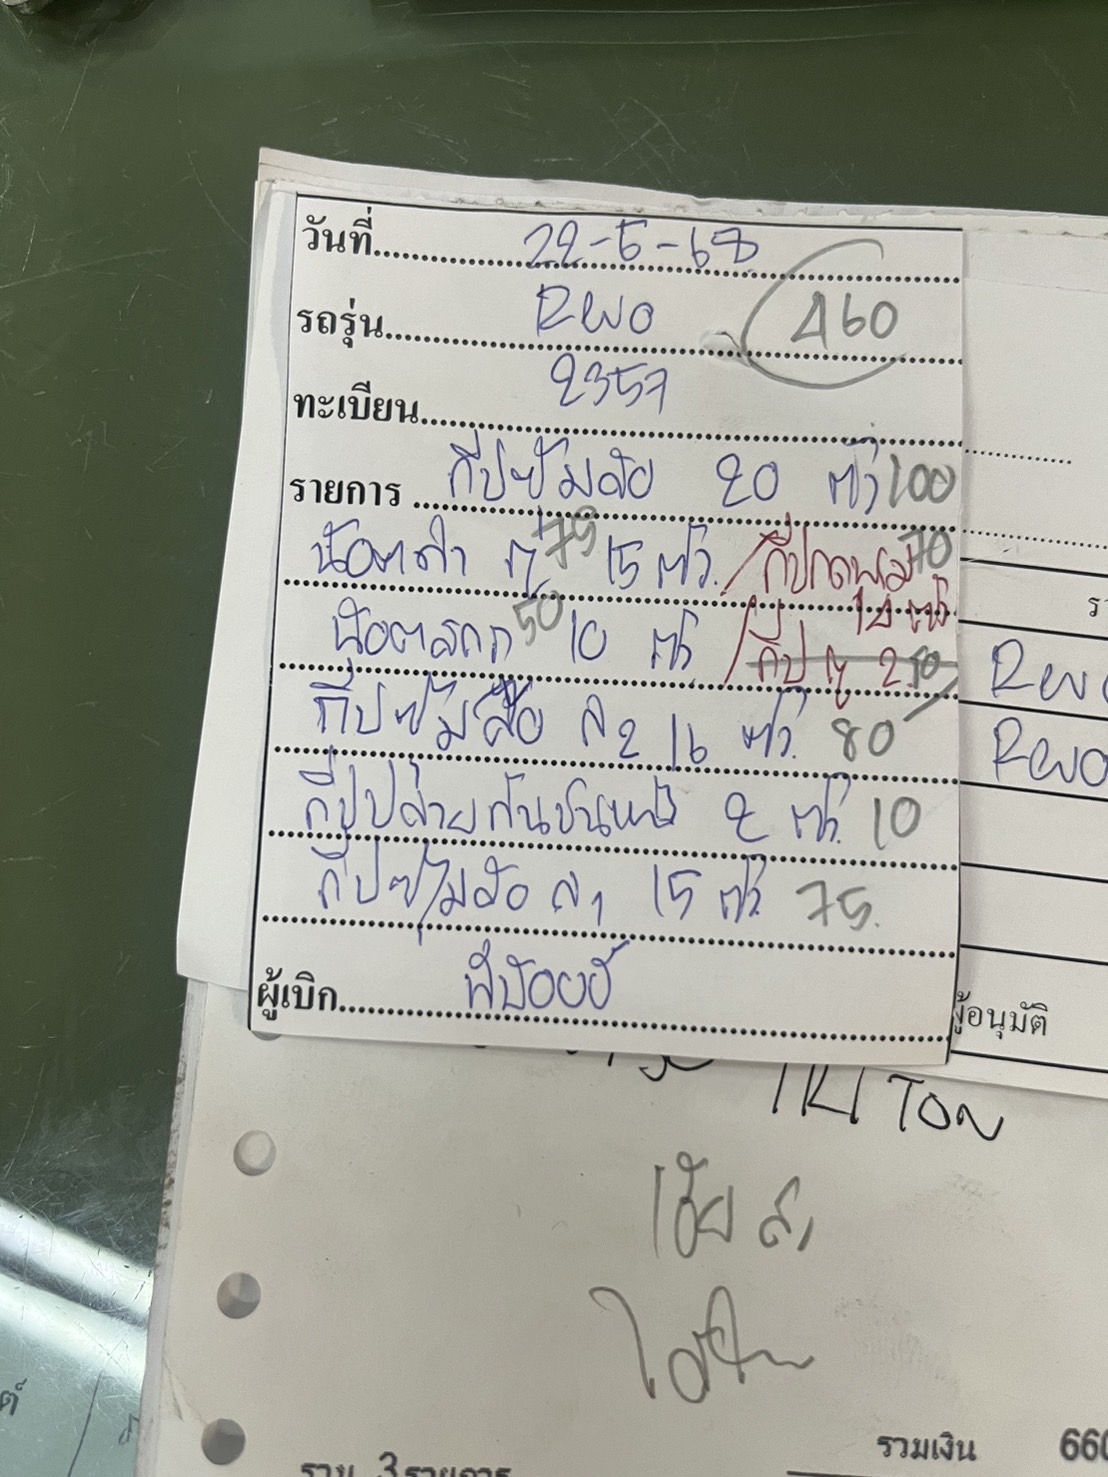 วันที่ 22-5-68
รถรุ่น Revo 460
ทะเบียน 2357
รายการ กี๊ปซุ้มล้อ 20 ตัว 100
น๊อตดำ 75 15 ตัว. / กี๊ปกดพรม 70
14 ตัว
น๊อตสกก 50 10 ตัว / กี๊ป หู 2 50
กี๊ปซุ้มล้อ ล2 16 ตัว. 80
กี๊ปปลายกันชนหน้า 2 ตัว. 10
กี๊ปซุ้มล้อ ล1 15 ตัว 75.
ผู้เบิก พี่น้อยอู๊
Revo
Revo
ผู้อนุมัติ
TRITON
รวมเงิน 660
รวม 3 รายการ